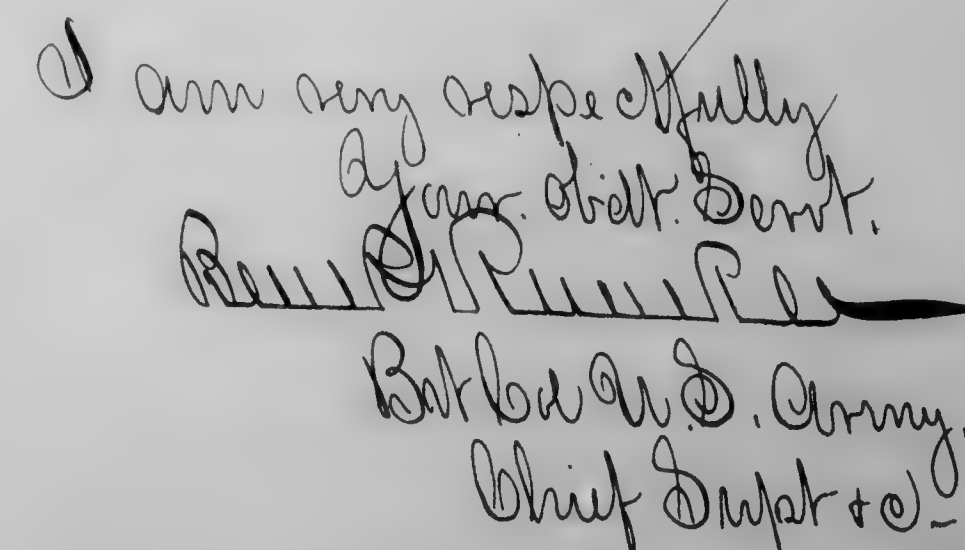 I am very respectfully
Your. Obidt. Servt.
Ben P Runkle
Bvt Col U.S. Army,
Chief Supt &c-